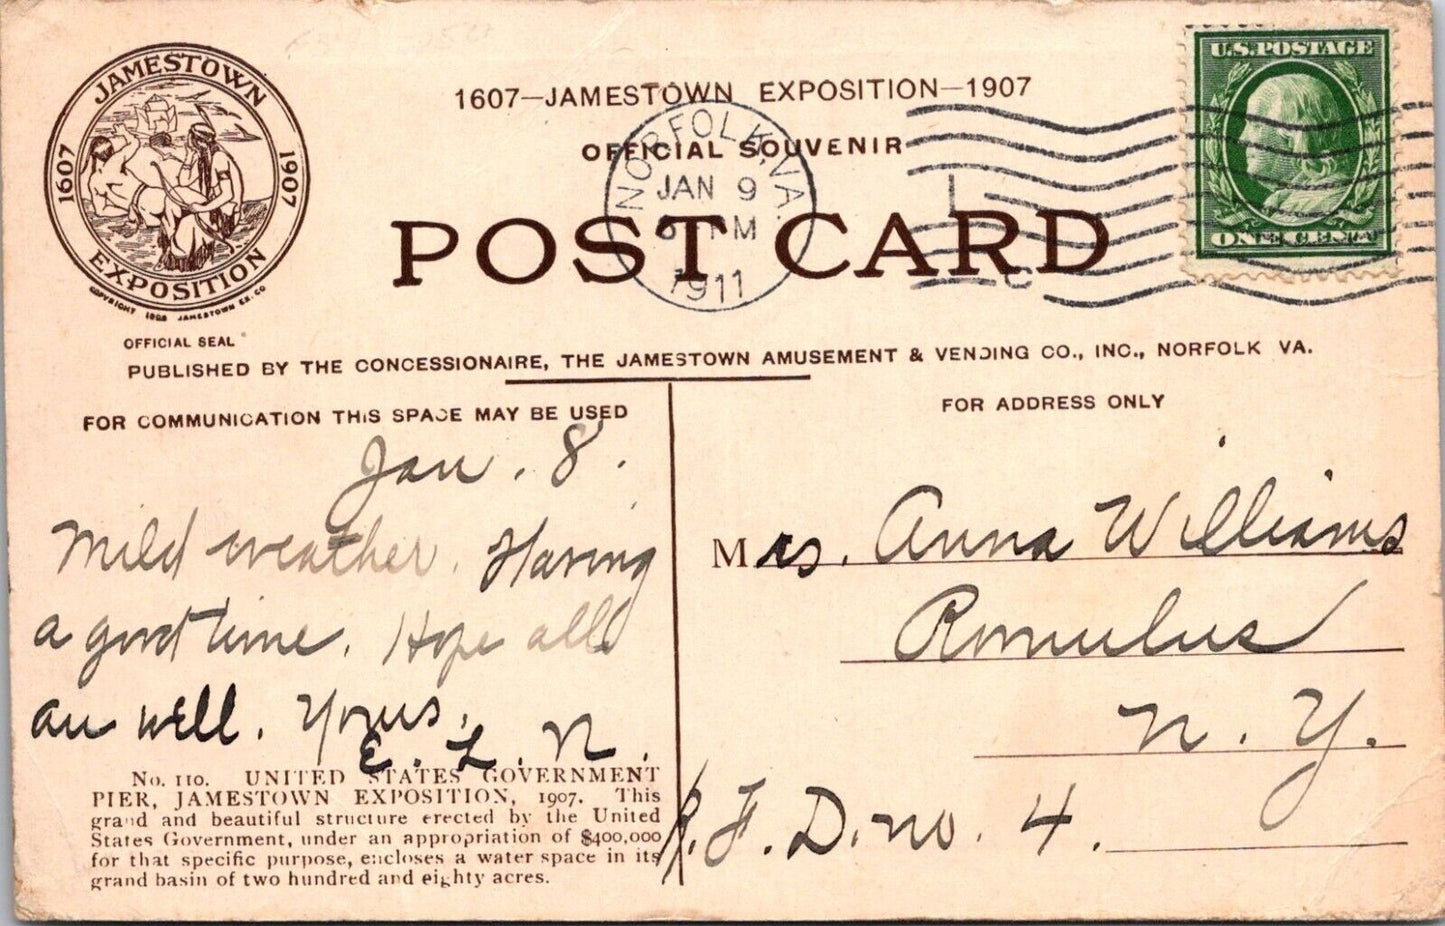 JAMESTOWN
1607
1907
EXPOSITION
COPYRIGHT 1906 JAMESTOWN EX. CO
OFFICIAL SEAL
1607—JAMESTOWN EXPOSITION—1907
OFFICIAL SOUVENIR
POST CARD
NORFOLK, VA.
JAN 9
PM
1911
U.S. POSTAGE
ONE CENT
PUBLISHED BY THE CONCESSIONAIRE, THE JAMESTOWN AMUSEMENT & VENDING CO., INC., NORFOLK VA.
FOR COMMUNICATION THIS SPACE MAY BE USED
Jan. 8.
Mild weather. Having
a good time. Hope all
are well. Yours,
E. L. N.
No. 110. UNITED STATES GOVERNMENT
PIER, JAMESTOWN EXPOSITION, 1907. This
grand and beautiful structure erected by the United
States Government, under an appropriation of $400,000
for that specific purpose, encloses a water space in its
grand basin of two hundred and eighty acres.
FOR ADDRESS ONLY
Mrs. Anna Williams
Romulus
N. Y.
R. F. D. no. 4.